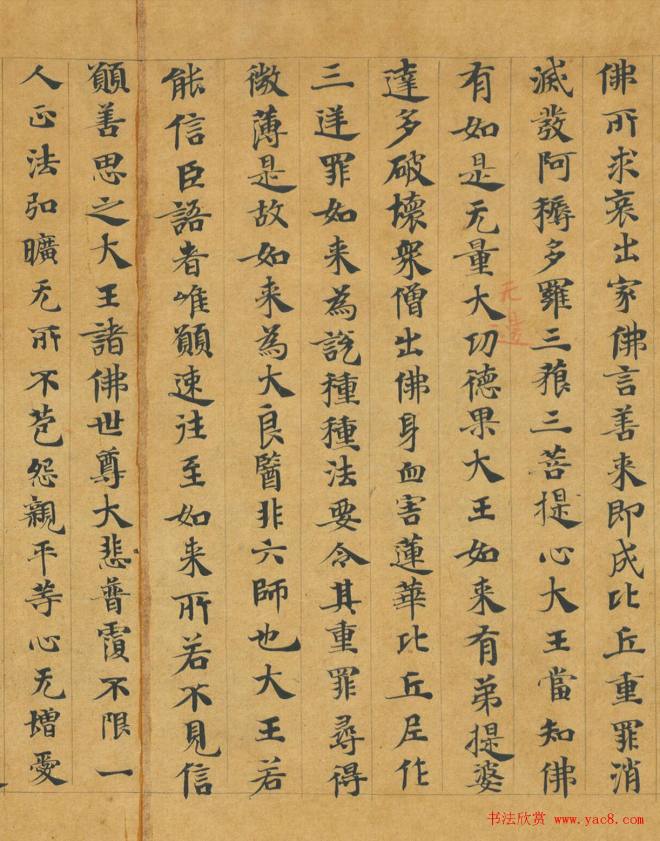 佛所求哀出家佛言善来即成比丘重罪消
滅發阿耨多羅三藐三菩提心大王當知佛
有如是无量大功德果大王如来有弟提婆
達多破壞衆僧出佛身血害蓮華比丘尼作
三逆罪如来為説種種法要令其重罪尋得
微薄是故如来為大良醫非六師也大王若
能信臣語者唯願速往至如来所若不見信
願善思之大王諸佛世尊大悲普覆不限一
人正法弘曠无所不苞怨親平等心无憎愛
书法欣赏 www.yac8.com